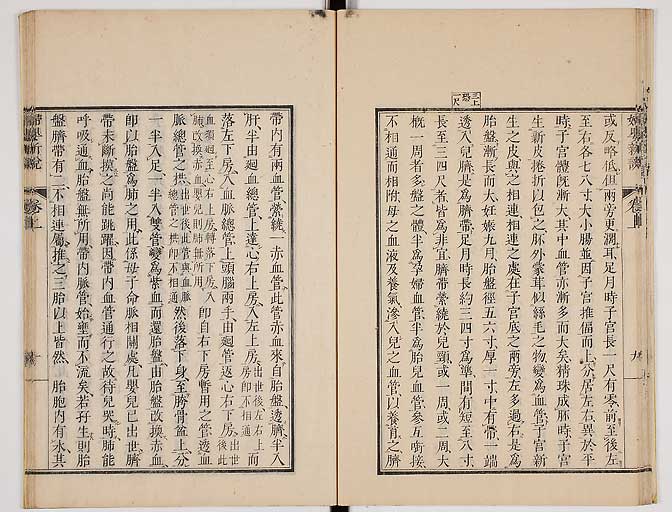 或反略低但兩旁更濶耳足月時子宮長一尺有零前至後左
至右各七八寸大小腸並因子宮推偪而上分居左右異於平
時子宮體旣漸大其中血管亦漸多而大矣精珠成胚時子宮
生新皮捲折以包之胚外蒙茸似絲毛之物變爲血管子宮新
生之皮與之相連相連之處在子宮底之兩旁左多過右是爲
胎盤漸長而大妊娠九月胎盤徑五六寸厚一寸中有帶一端
透入兒臍是爲臍帶足月時長約三四寸爲準間有短至八寸
長至三四尺者皆爲非宜臍帶縈繞於兒頸或一周或二周大
概一周者多盤之體半爲孕婦血管半爲胎兒血管參互啣接
不相通而相附母之血液及養氣滲入兒之血管以養育之臍
三上恐一尺
婦嬰新說
卷上
九
帶内有兩血管縈繞一赤血管此管赤血來自胎盤透臍半入
肝半由迴血總管上達心右上房入左上房出世後左右上房卽不相通而
落左下房入血脈總管上頭腦兩手由迴管返心右下房出世後此
血須廻至心右上房轉落下房入肺改換赤血嬰兒則肺無所用卽自右下房暫用之管透血
脈總管之拱出世後此管與血脈總管之拱卽不相通然後落下身至胯骨盆上分
一半入足一半入雙管變爲紫血而還胎盤由胎盤改換赤血
卽以胎盤爲肺之用此係母子命脈相關處凡嬰兒已出世臍
帶未斷摸之尚能跳躍因帶内血管通行之故待兒哭時肺能
呼吸通血胎盤無所用帶内脈管始壅而不流矣若孖生則胎
盤臍帶有二不相連屬推之三胎以上皆然　胎胞内有水其
婦嬰新說
卷上
十